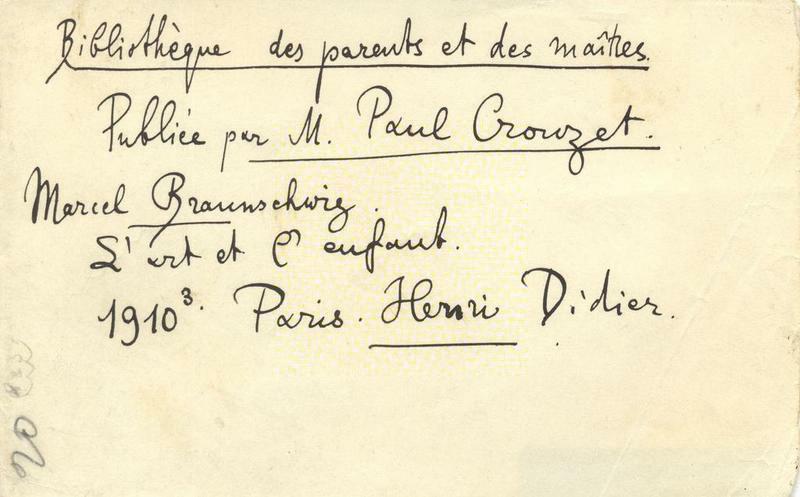 Bibliothèque des parents et des maîtres.
Publiée par M. Paul Crouzet.
Marcel Braunschwig.
L'art et l'enfant.
1910³. Paris. Henri Didier.
20